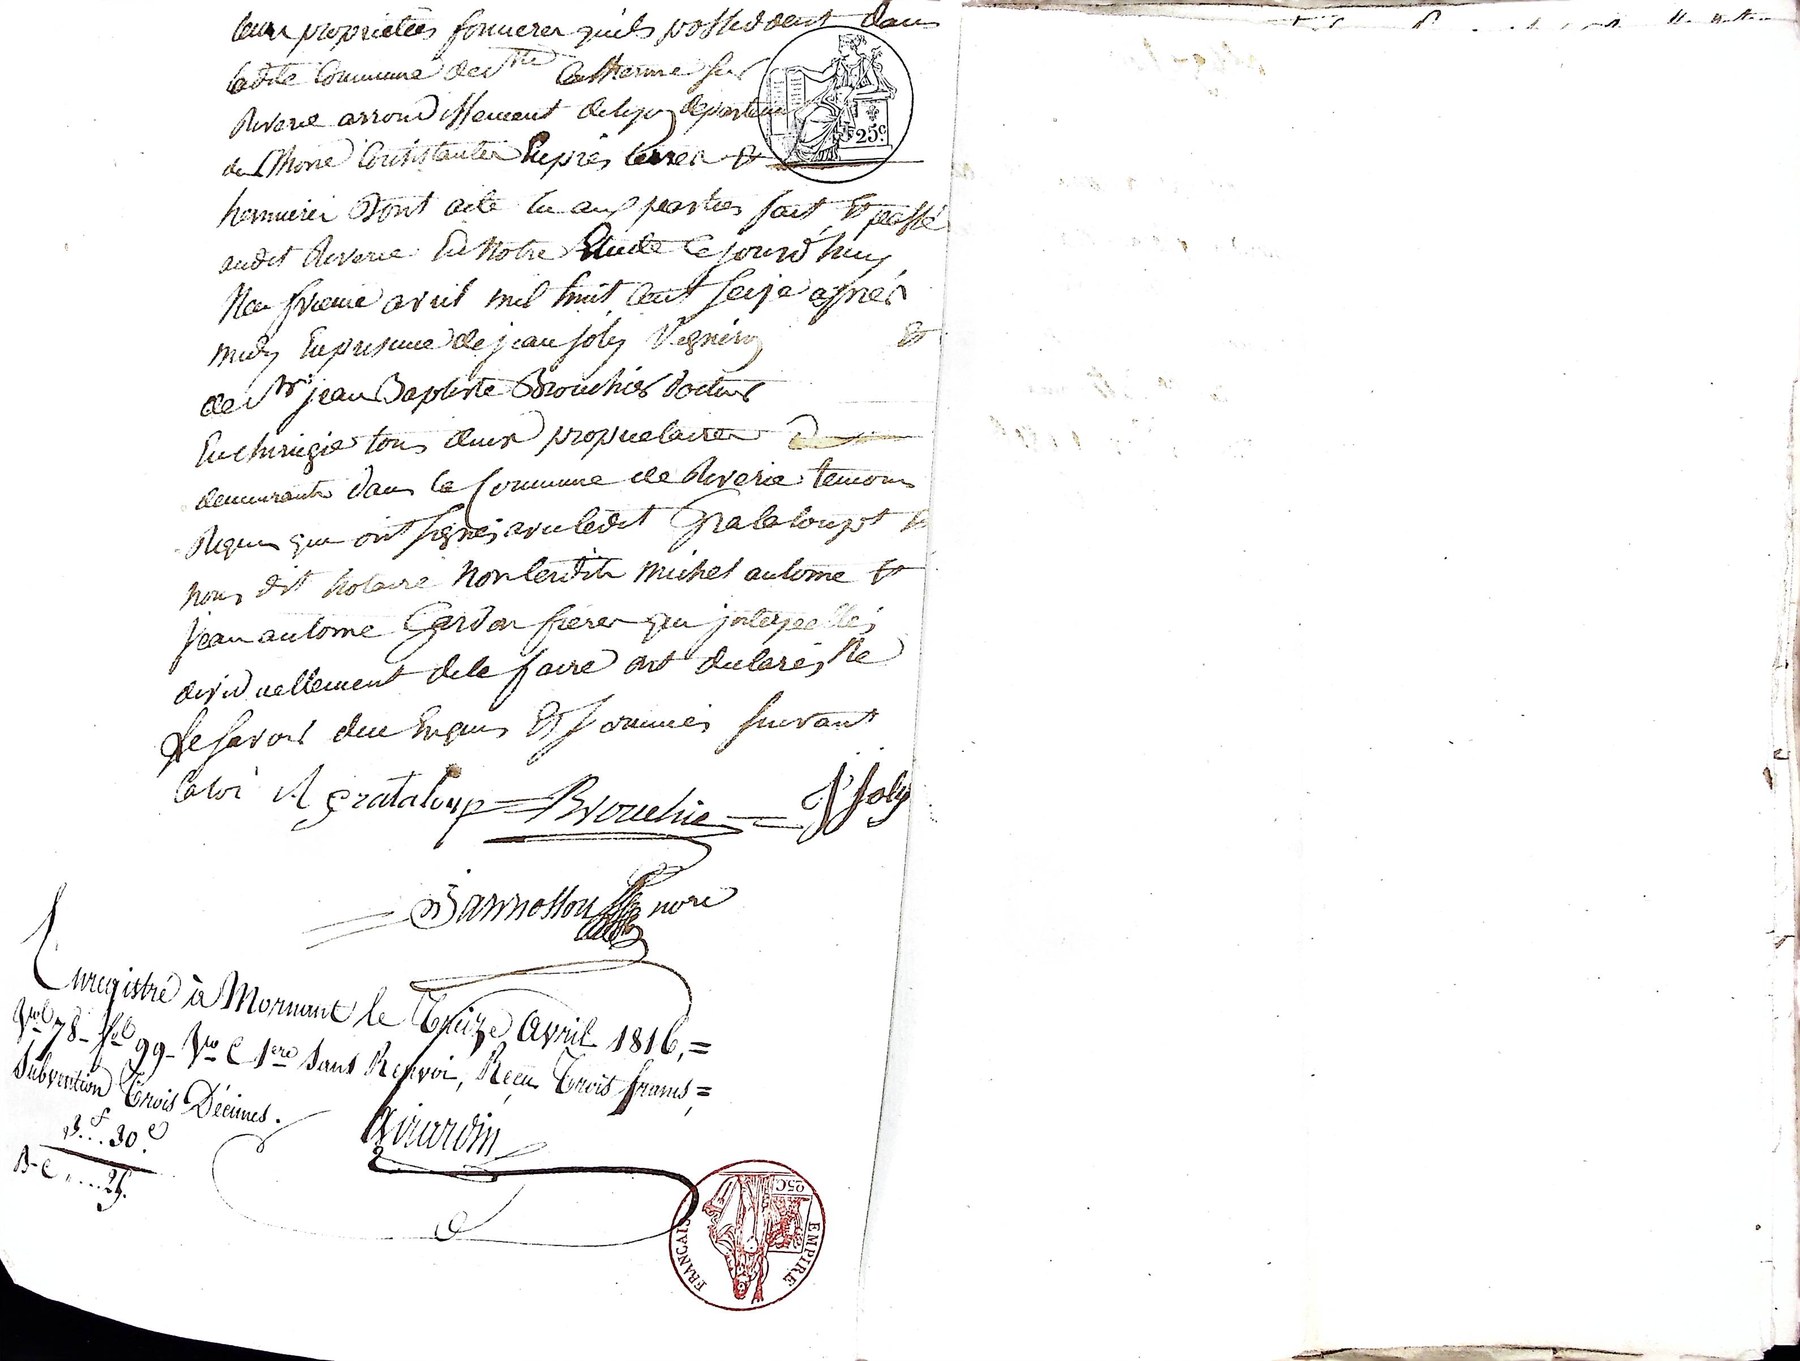 leurs propriétés foncieres quils possedent dans
ladite Commune de Ste Catherine sur
Riverie arrondissement de lyon departem
du Rhone Consistantes En prés terres Et
hermures Dont acte lu aux parties fait Et passé
audit Riverie En Notre Etude Ce jourd'huy
avril mil huit Cent seize après
midy En presence de jean joly Vigneron Et
de Mr jean Baptiste Brouchier docteur
En chirugie tous deux proprietaires
demeurants dans la Commune de Riverie temoins
Requis qui ont signés avec ledit Grataloup Et
nous dit notaire Non lesdits michel antoine Et
jean antoine Gardon freres qui interpellés
dividuellement de le faire ont declarés Ne
le savoir de ce Enquis Et sommés suivant
la loi A grataloup = Brouchie = J Joly
Jannosson nore
Enregistré à Mornant le Treize Avril 1816, =
Vol 78 - fol 99 - Vo C 1ere sans Renvoi, Reçu Trois francs, =
Subvention Trois Décimes.
3f...30c.
B-C....25.
Girardin
25c.
25C
EMPIRE
FRANCAIS